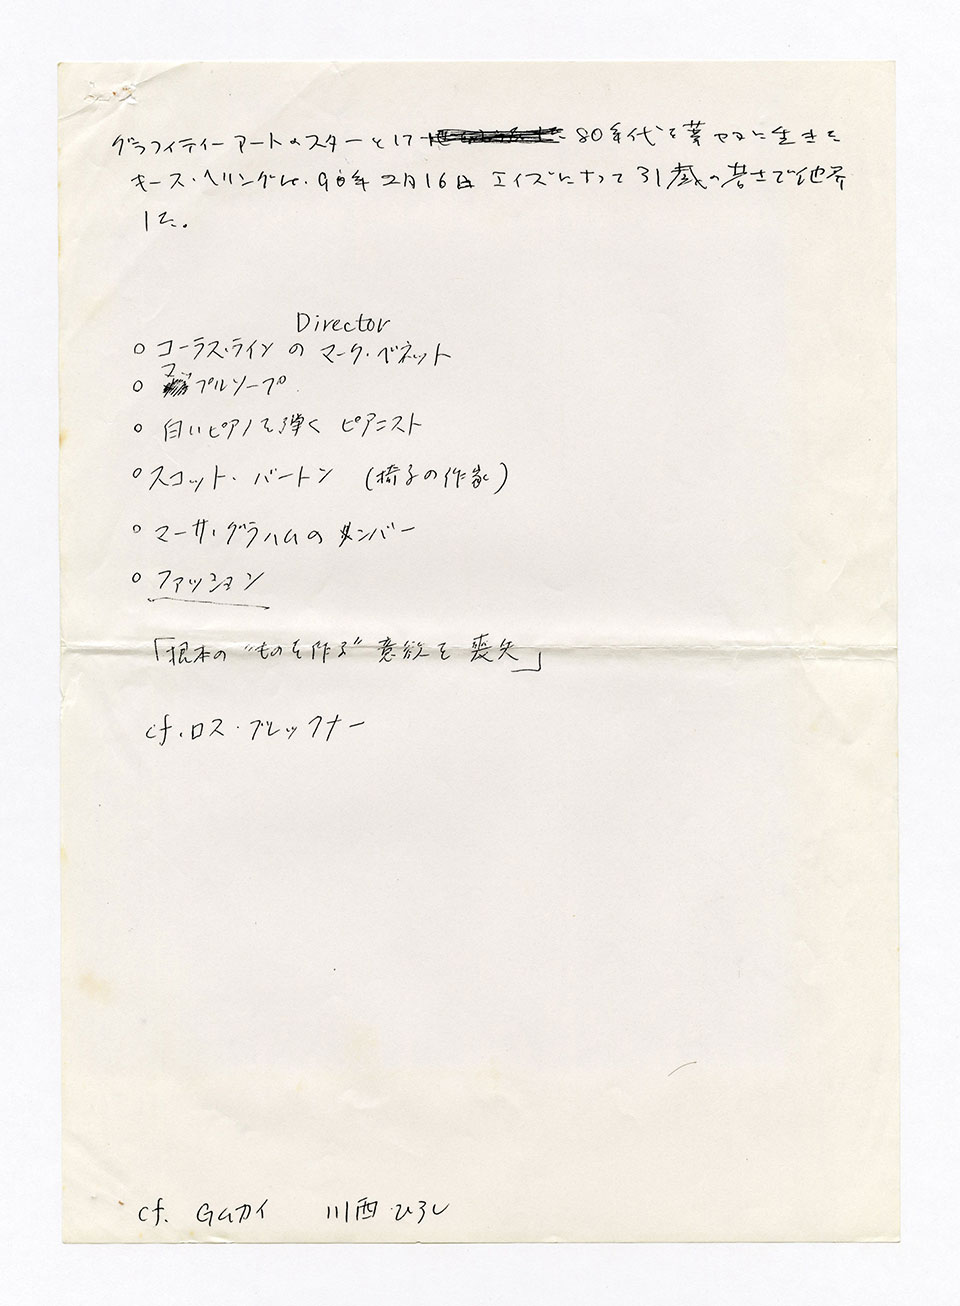 グラフィティーアートのスターとして 80年代を華やかに生きた
キース・ヘリングは、90年2月16日 エイズによって31歳の若さで他界
した。
Director
○ コーラス・ラインの マーク・ベネット
○ マップルソープ
○ 白いピアノを弾く ピアニスト
○ スコット・バートン (椅子の作家)
○ マーサ・グラハムの メンバー
○ ファッション
「根本の “ものを作る” 意欲を 喪失」
cf. ロス・ブレックナー
cf. 川西 ひろし